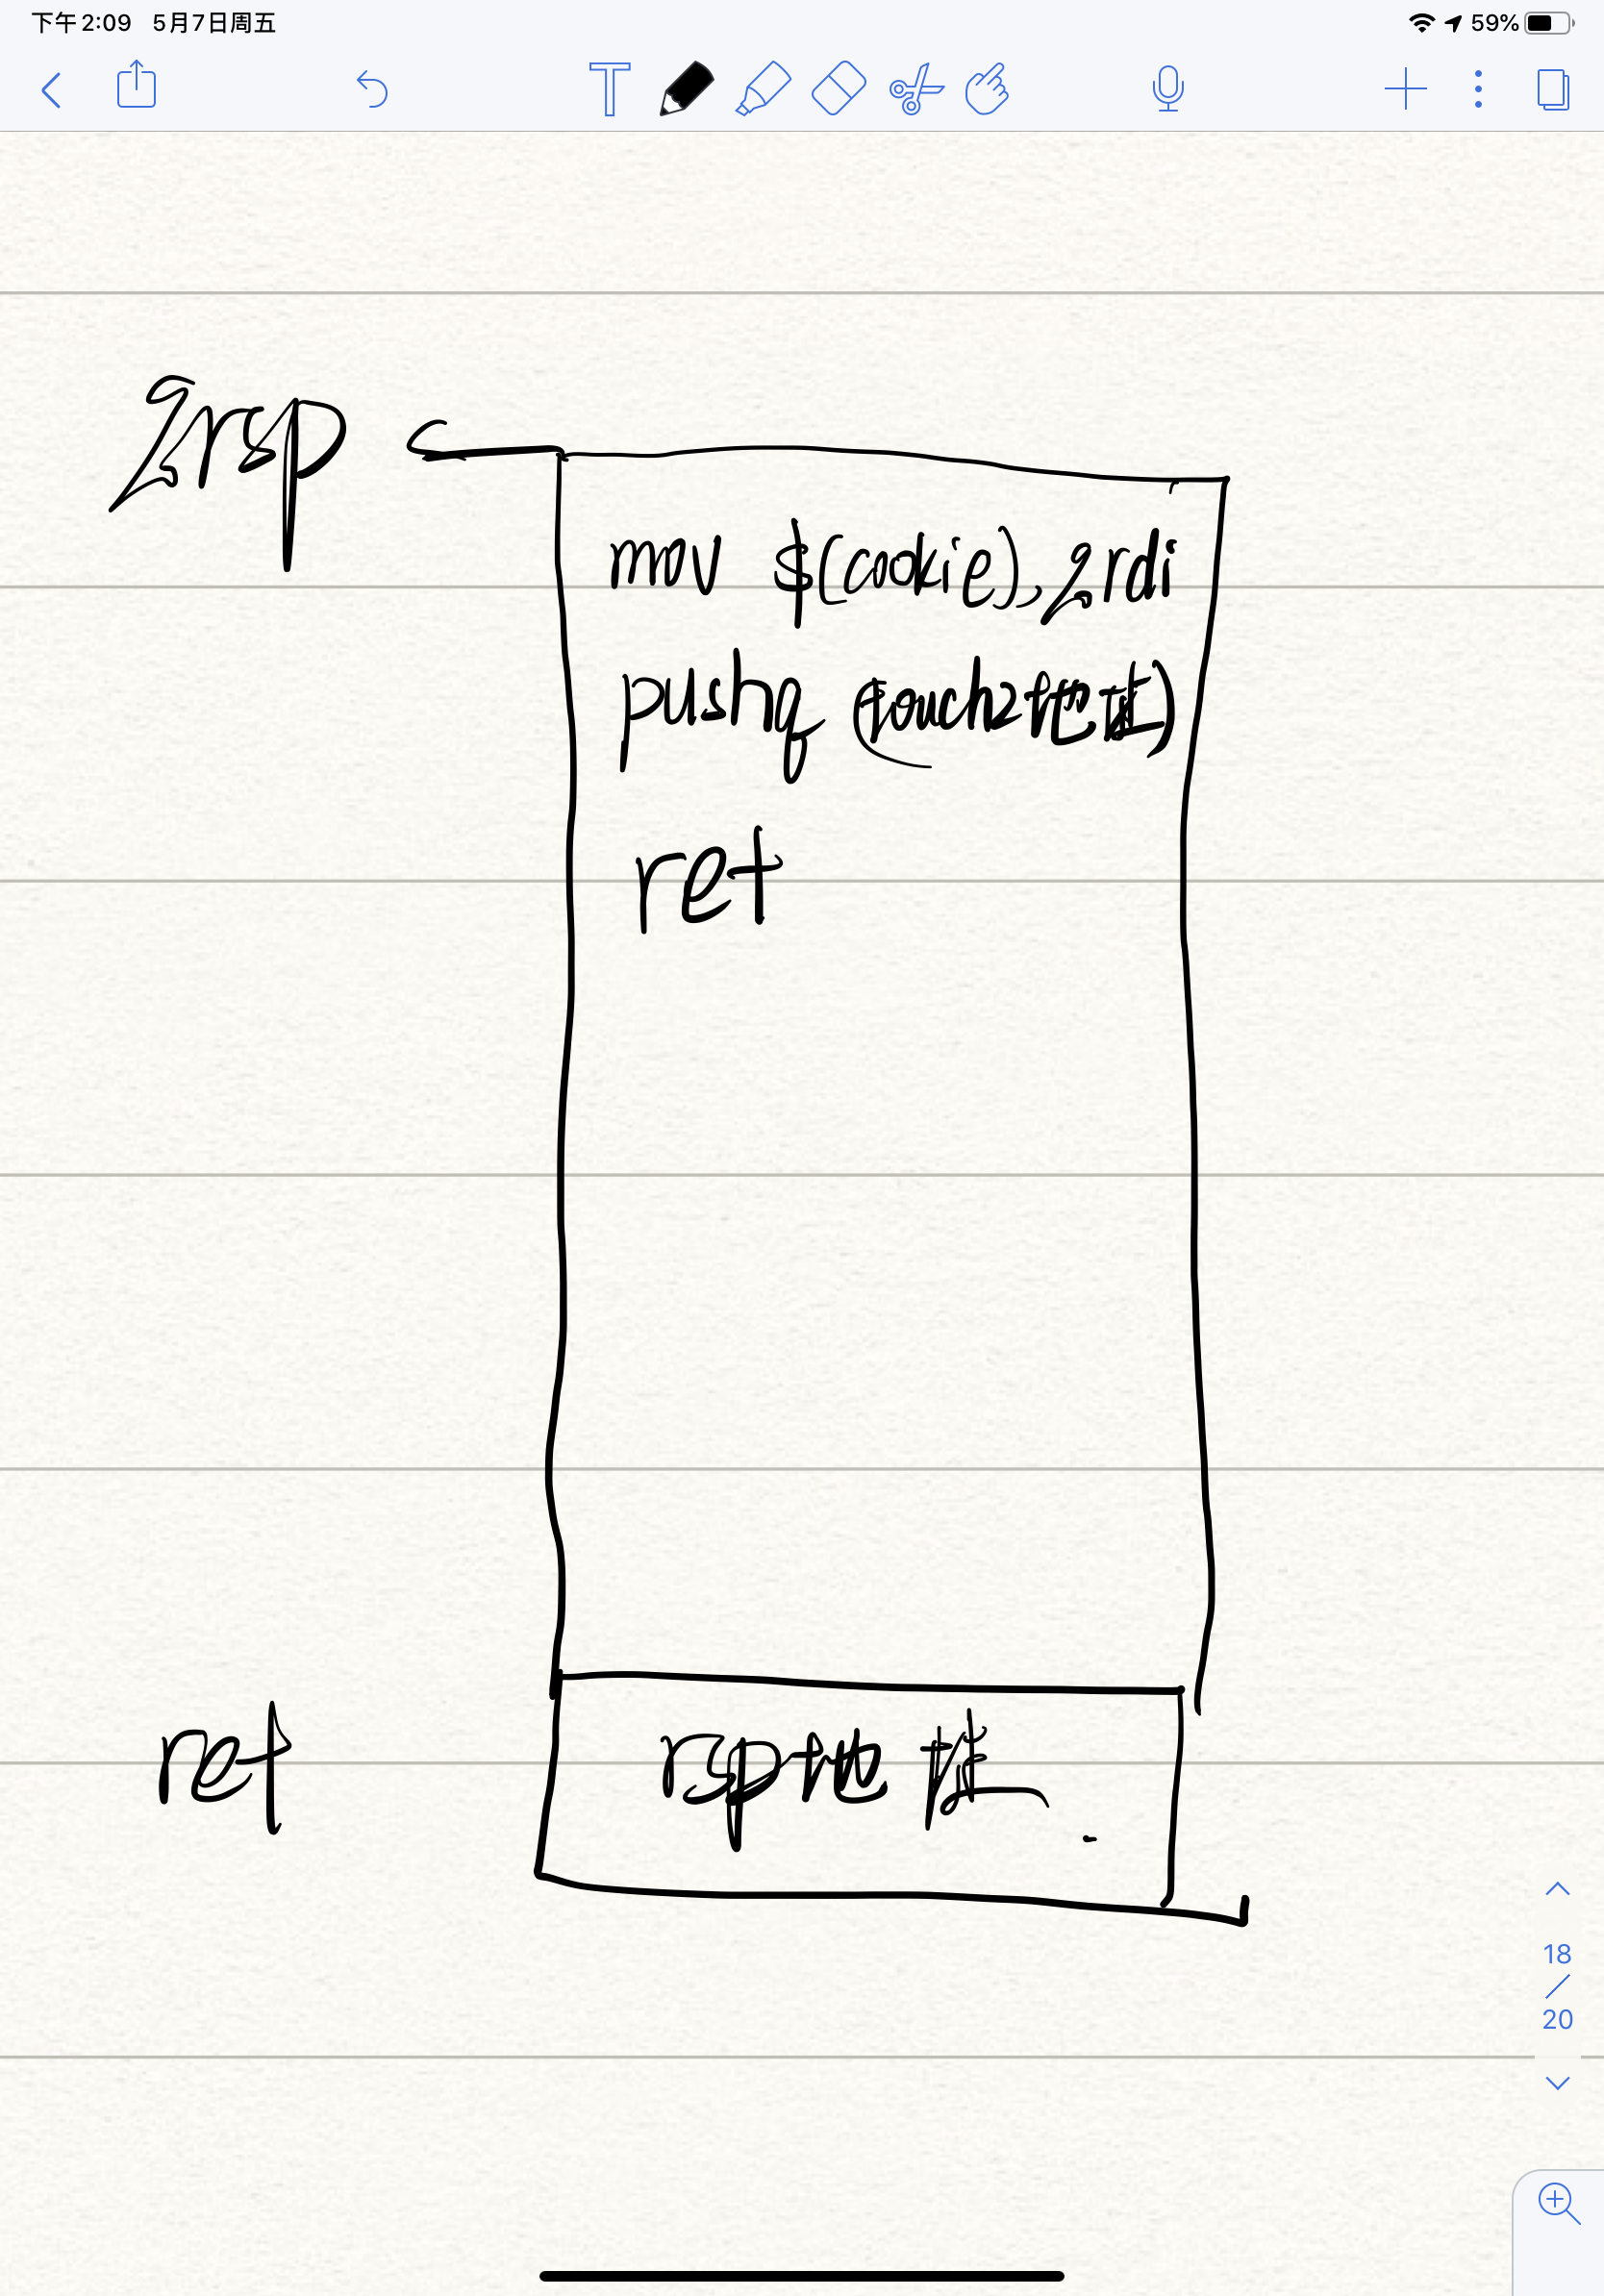 下午2:09 5月7日周五
59%
%rsp
mov $(cookie),%rdi
pushq (touch2地址)
ret
ret
rsp地址
18
/
20